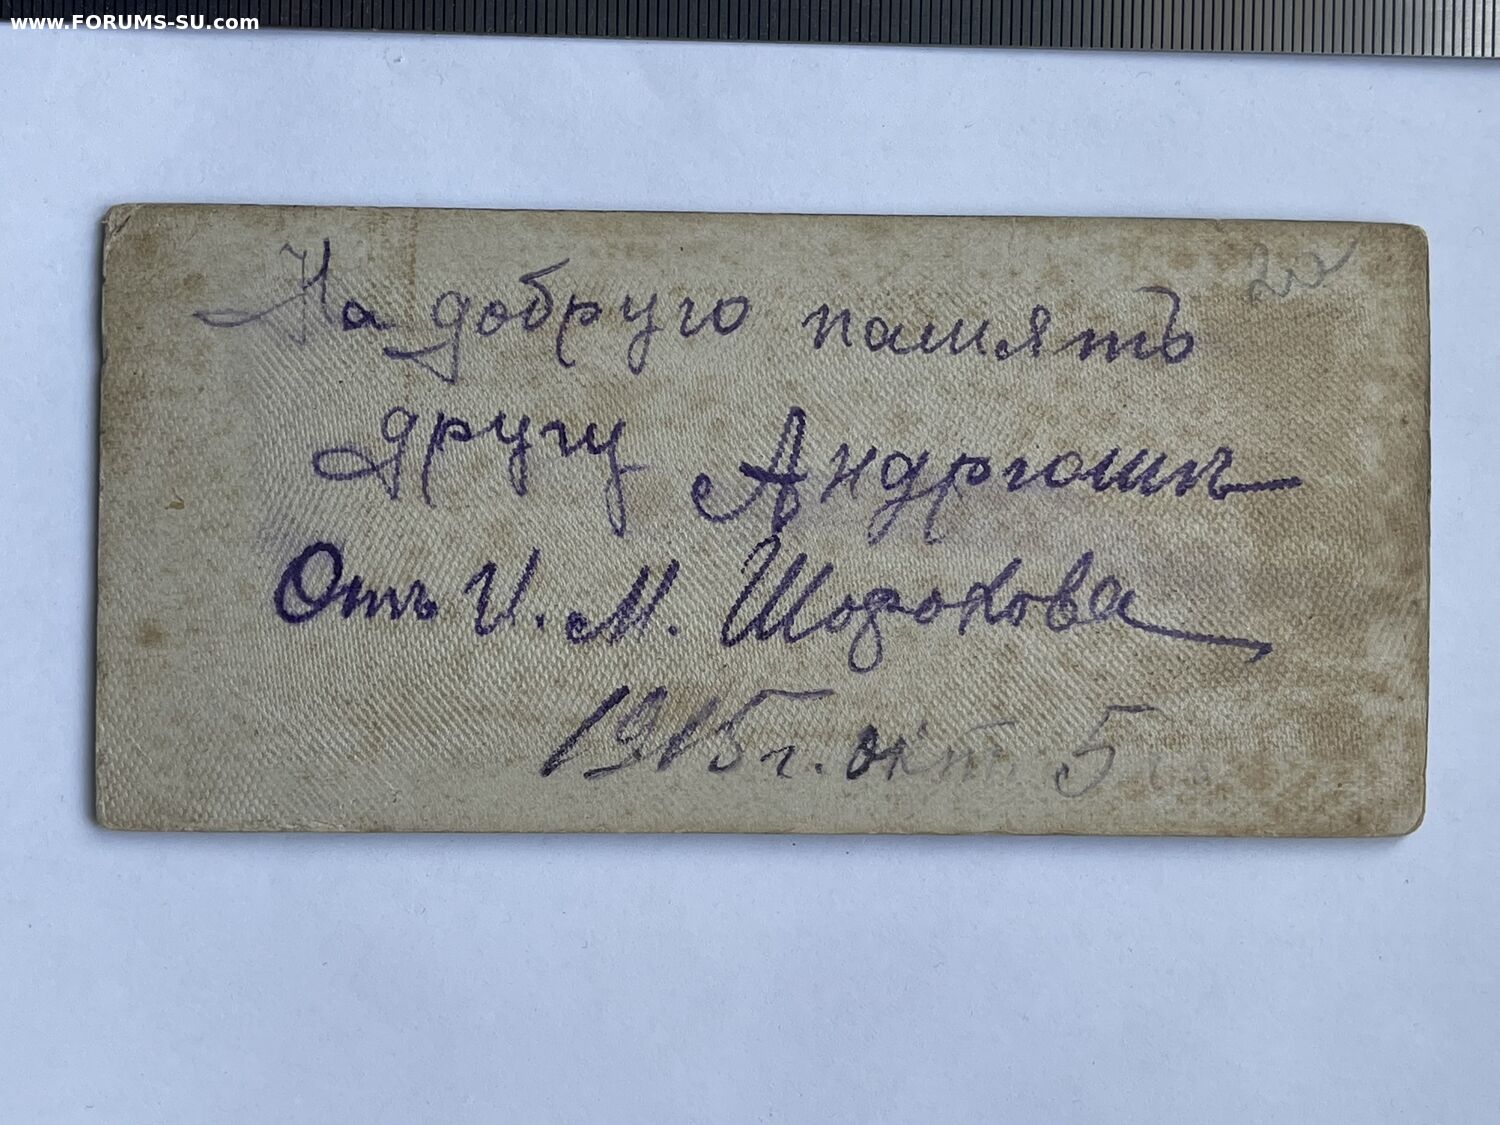 www.FORUMS-SU.com
На добруго память
другу Андрюшѣ
Отъ И. М. Шорохова
1915 г. окт. 5